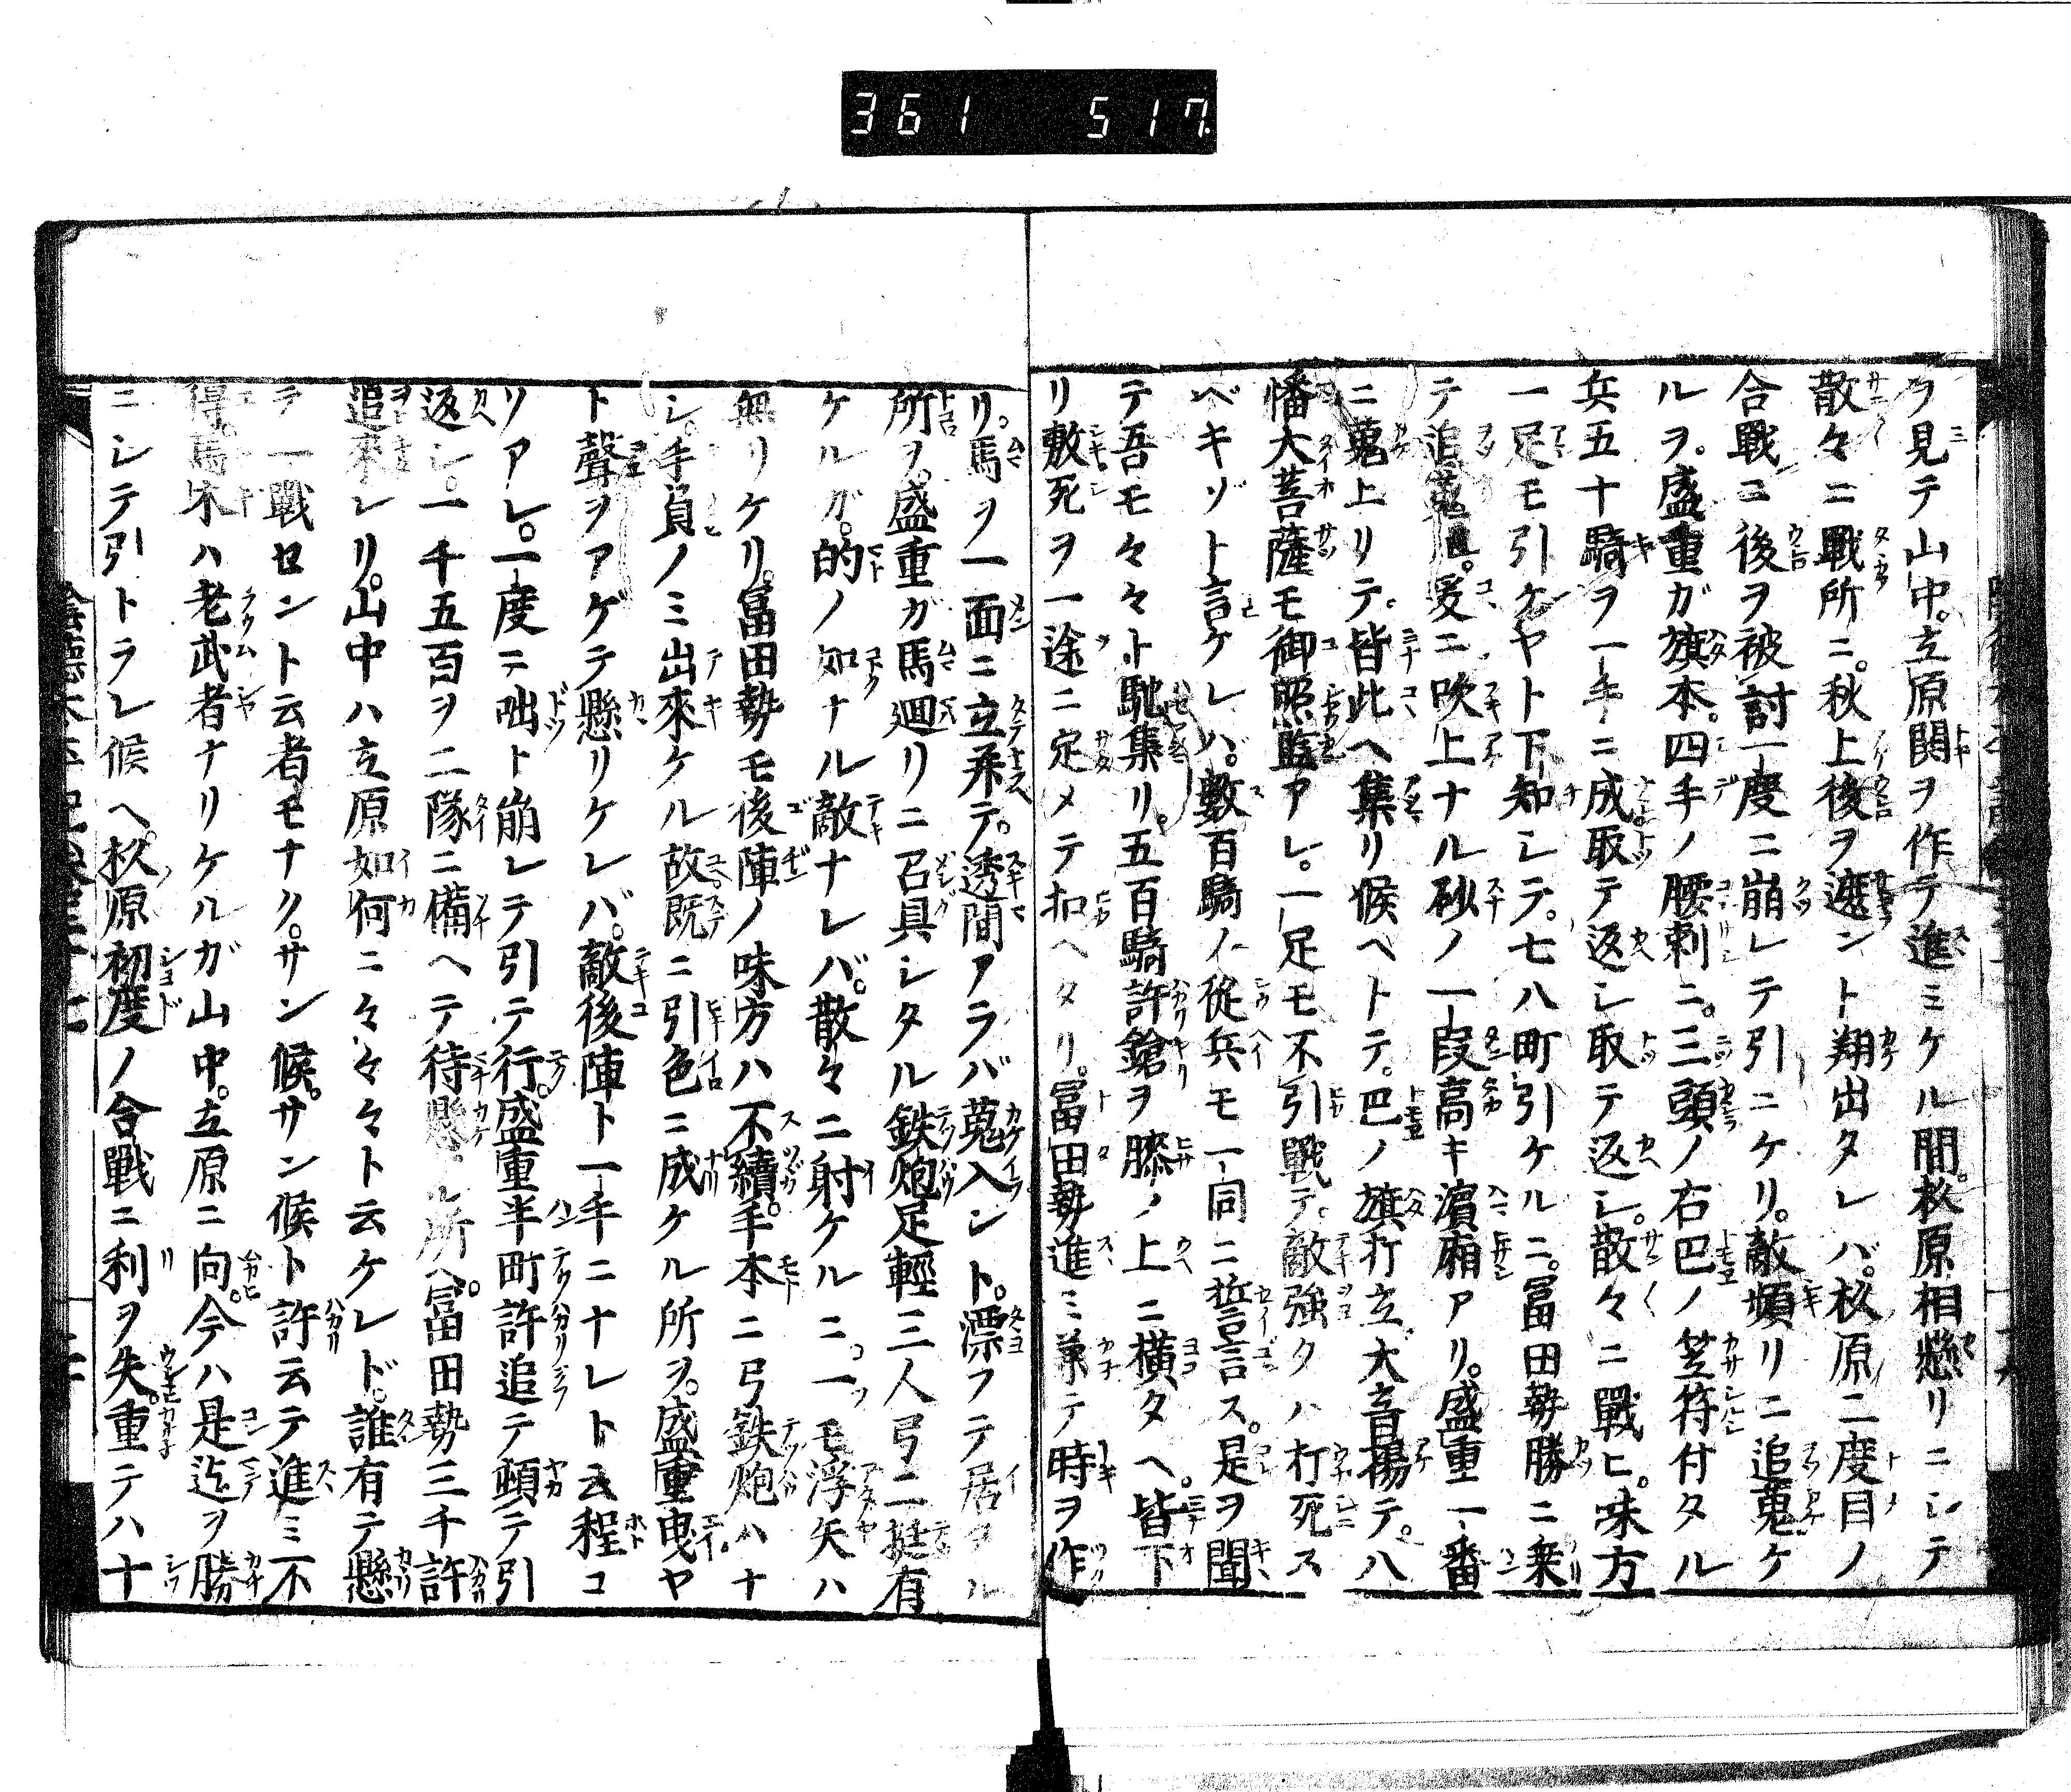 361 517
ヲ見テ山中。立原鬨ヲ作テ進ミケル間。杦原相懸リニシテ
散々ニ戰所ニ。秋上後ヲ遮ント翔出タレバ。杦原二度目ノ
合戰ニ後ヲ被討一度ニ崩レテ引ニケリ。敵頻リニ追蒐ケ
ルヲ。盛重ガ旗本。四手ノ腰刺ニ。三頭ノ右巴ノ笠符付タル
兵五十騎ヲ一手ニ成取テ返シ取テ返シ。散々ニ戰ヒ。味方
一足モ引ケヤト下知シテ。七八町引ケルニ。冨田勢勝ニ乗
テ追蒐シ。爰ニ吹上ナル砂ノ一段高キ濱廂アリ。盛重一番
ニ蒐上リテ。皆此ヘ集リ候ヘトテ。巴ノ旗打立大音揚テ。八
幡大菩薩モ御照臨アレ。一足モ不引戰テ。敵強クハ打死ス
ベキゾト言ケレバ。數百騎ノ従兵モ一同ニ誓言ス。是ヲ聞
テ吾モ々々ト馳集リ。五百騎許鎗ヲ膝ノ上ニ横タヘ。皆下
リ敷死ヲ一途ニ定メテ扣ヘタリ。冨田勢進ミ兼テ時ヲ作
リ。馬ヲ一面ニ立雙テ。透間アラバ蒐入ント。漂フテ居タル
所ヲ。盛重ガ馬廻リニ召具シタル鉄炮足輕三人弓二挺有
ケルガ。的ノ如ナル敵ナレバ。散々ニ射ケルニ。一モ浮矢ハ
無リケリ。冨田勢モ後陣ノ味方ハ不續。手本ニ弓鉄炮ハナ
シ。手負ノミ出來ケル故。既ニ引色ニ成ケル所ヲ。盛重曳ヤ
ト聲ヲアゲテ懸リケレバ。敵後陣ト一手ニナレト云程コ
ソアレ。一度ニ咄ト崩レテ引テ行。盛重半町許追テ頓テ引
返シ。一千五百ヲ二隊ニ備ヘテ待懸ル所ヘ。冨田勢三千許
追來レリ。山中ハ立原如何ニ々々々ト云ケレド。誰有テ懸
テ一戰セント云者モナク。サン候。サン候ト許云テ進ミ不
得。馬木ハ老武者ナリケルガ山中。立原ニ向。今ハ是迄ヲ勝
ニシテ引トラレ候ヘ。杦原初度ノ合戰ニ利ヲ失。重テハ十